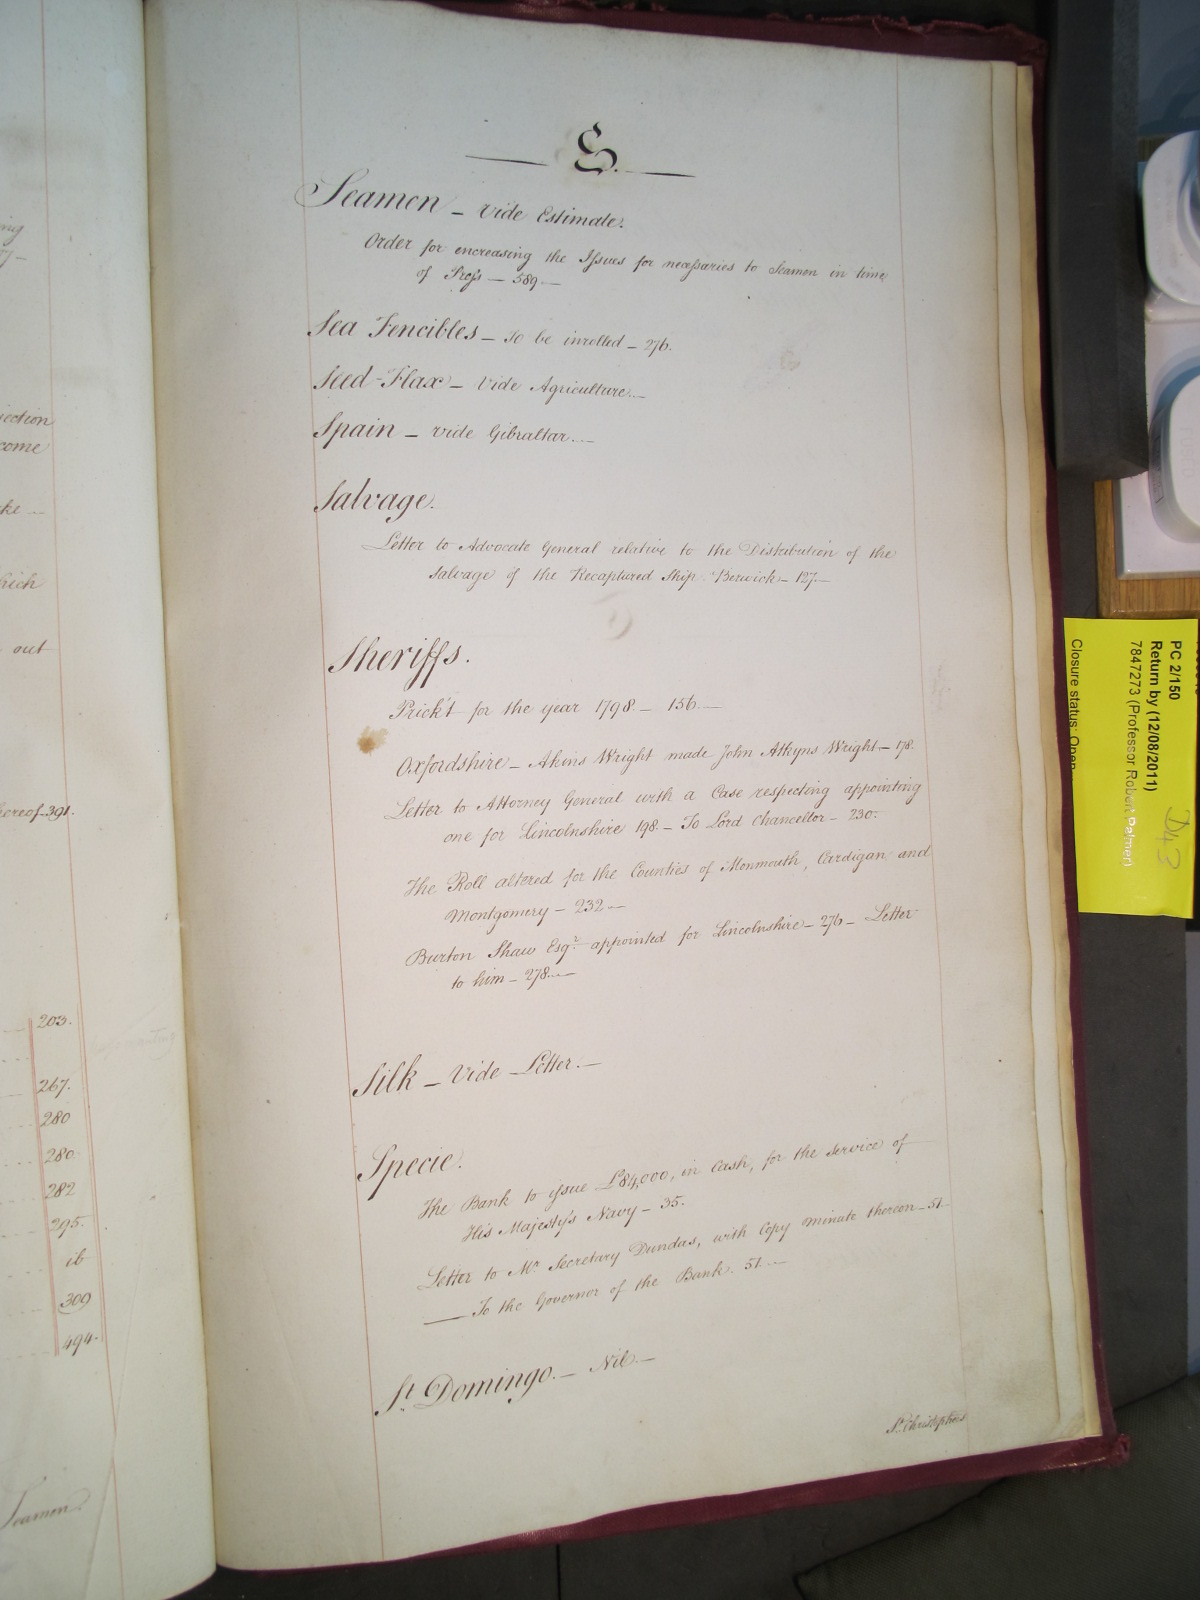 ng
jection
come
ke
hich
out
hereof 391.
203.
267.
280
280
282
295.
ib
309
494.
Seamen
S.
Seamen – vide Estimate.
Order for encreasing the Issues for necessaries to Seamen in time
of Press – 589 –
Sea Fencibles – To be inrolled – 276.
Seed-Flax – Vide Agriculture. –
Spain – vide Gibraltar. –
Salvage.
Letter to Advocate General relative to the Distribution of the
Salvage of the Recaptured Ship Berwick – 127. –
Sheriffs.
Prick't for the year 1798 – 156. –
Oxfordshire – Akins Wright made John Atkyns Wright – 178.
Letter to Attorney General with a Case respecting appointing
one for Lincolnshire 198. – To Lord Chancellor – 230.
The Roll altered for the Counties of Monmouth, Cardigan, and
Montgomery – 232 –
Burton Shaw Esqr. appointed for Lincolnshire – 276 – Letter
to him – 278. –
Silk – Vide Letter. –
Specie.
The Bank to issue £84,000, in Cash, for the Service of
His Majesty's Navy – 35.
Letter to Mr. Secretary Dundas, with Copy minute thereon – 51.
— To the Governor of the Bank. 51. –
St. Domingo. – Nil. –
St. Christophers
PC 2/150
Return by (12/08/2011)
7847273 (Professor Robert Palmer)
Closure status: Open
D43